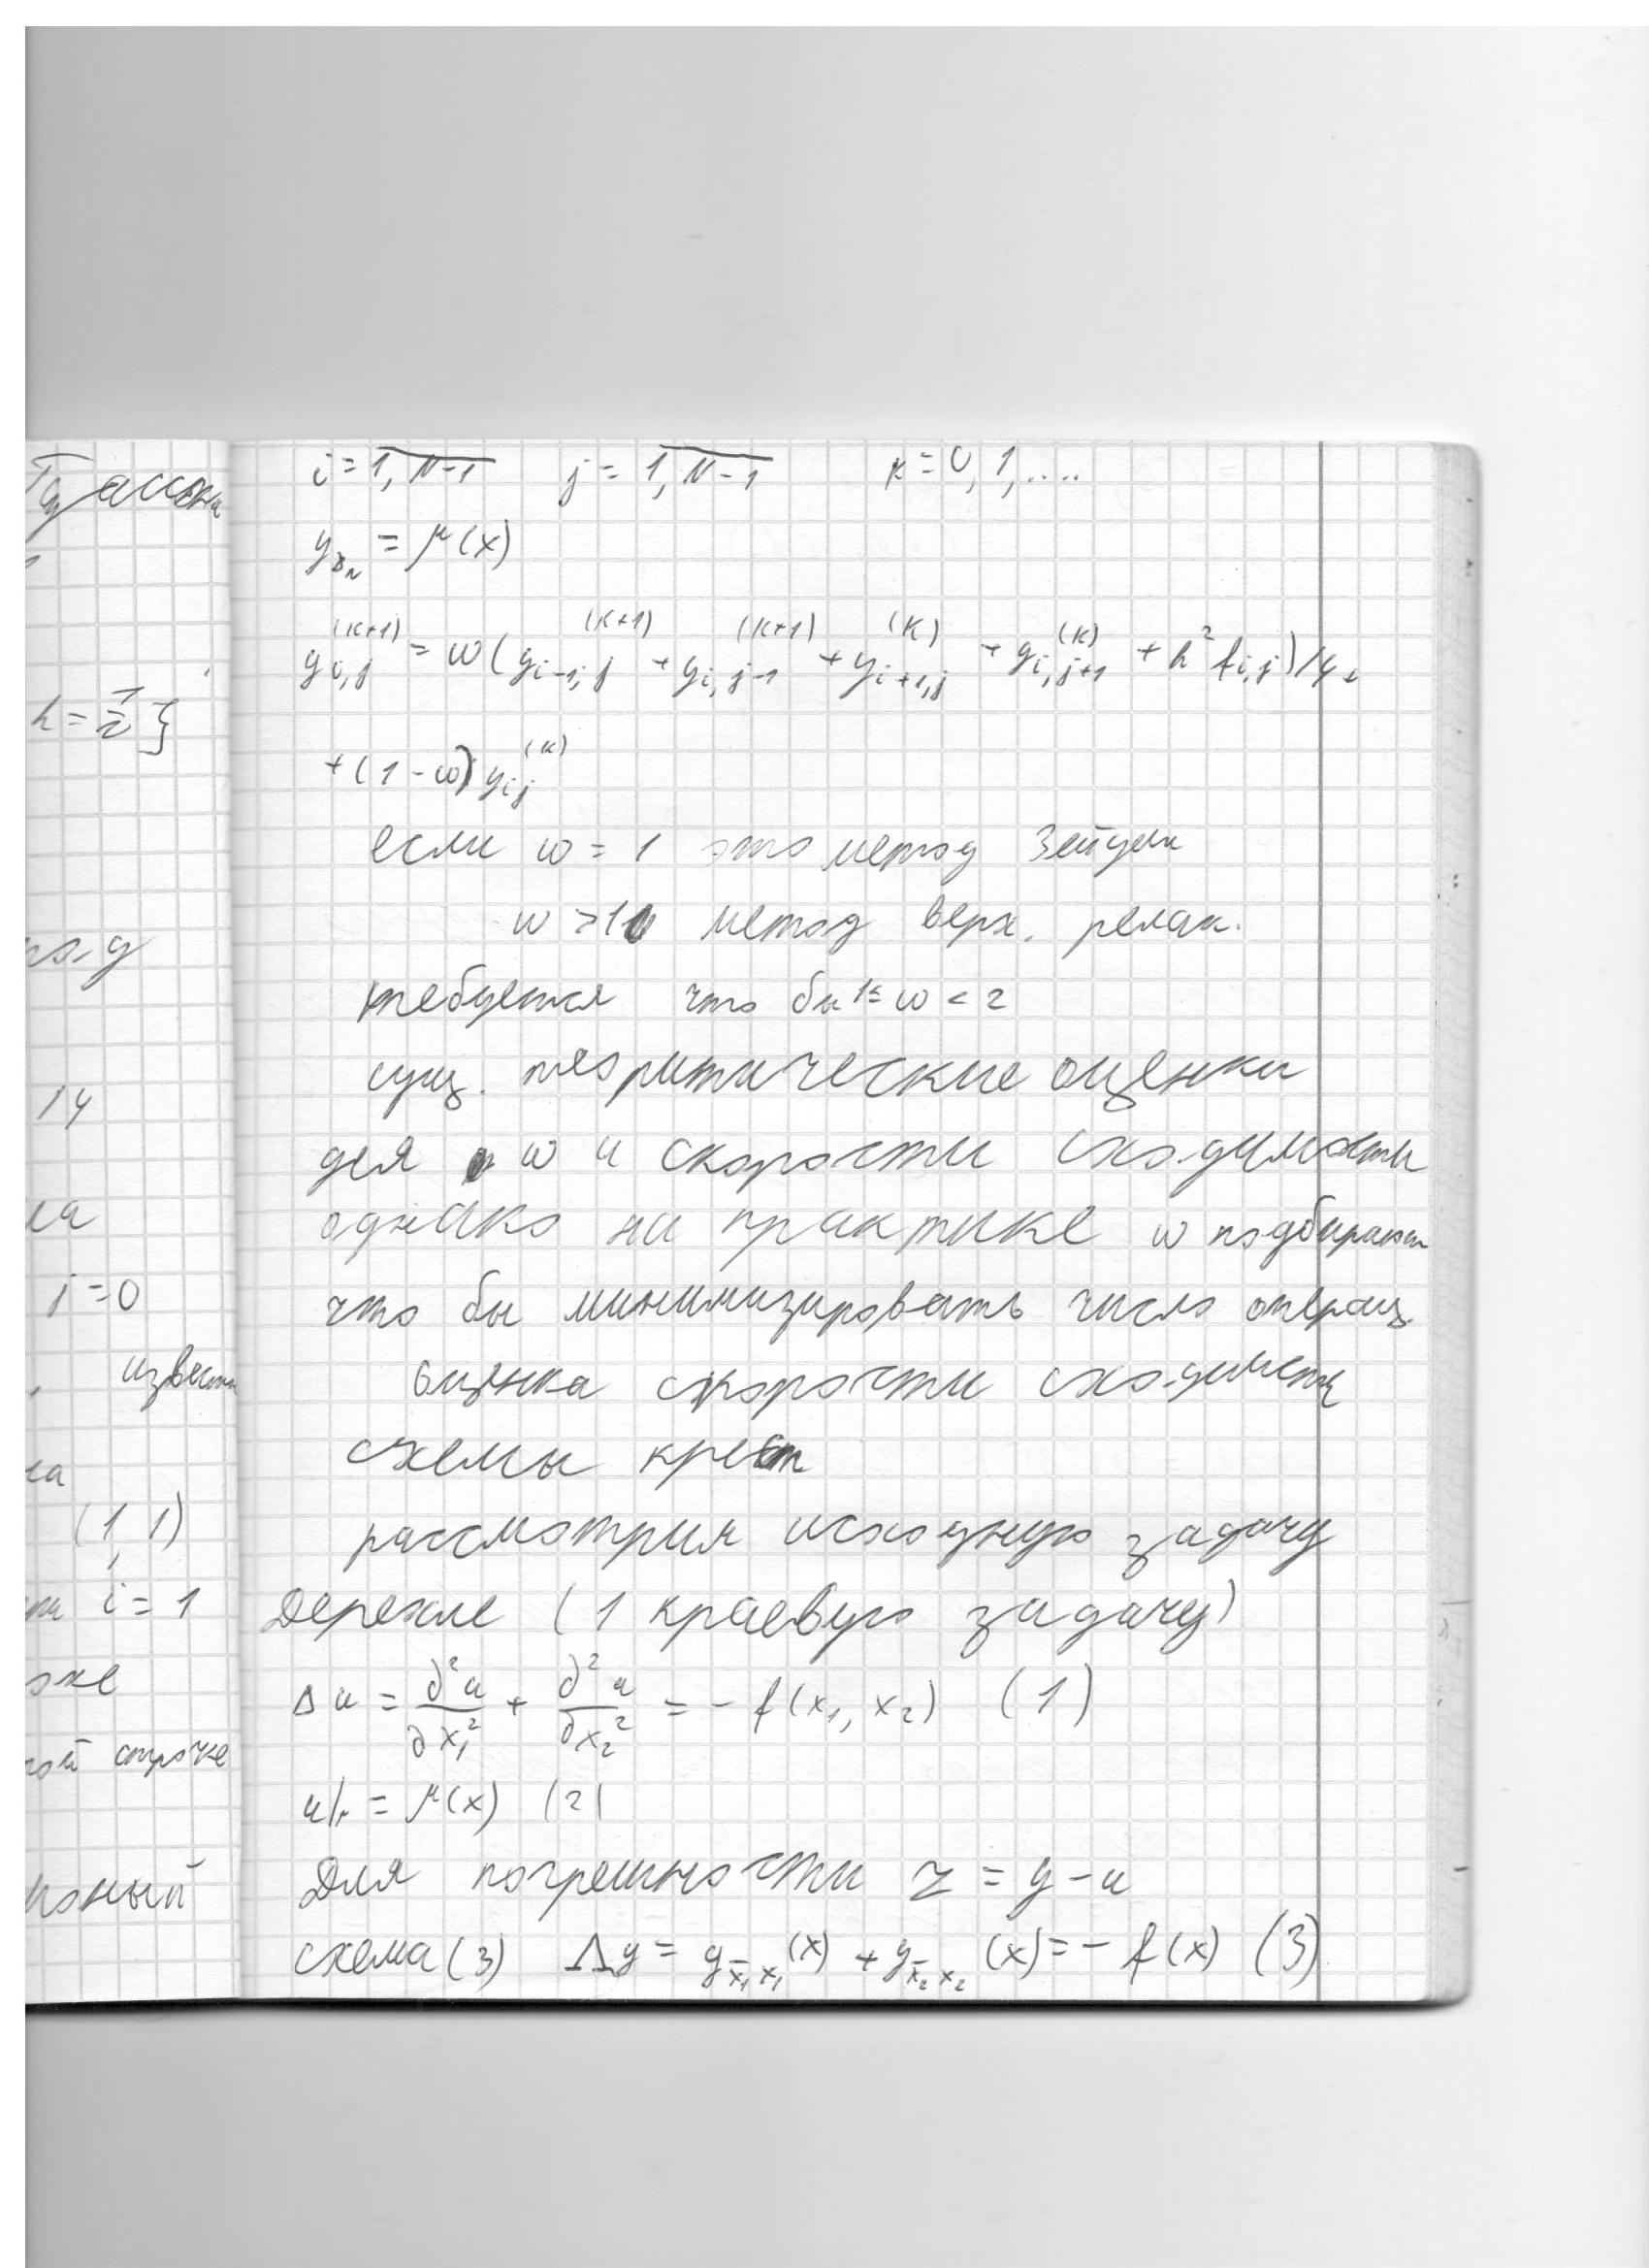 i = 1, N-1   j = 1, N-1   k = 0, 1, ....
y_γn = μ(x)
y_{i,j}^{(k+1)} = ω( y_{i-1,j}^{(k+1)} + y_{i,j-1}^{(k+1)} + y_{i+1,j}^{(k)} + y_{i,j+1}^{(k)} + h² f_{i,j})/4 +
+ (1 - ω) y_{ij}^{(k)}
если ω = 1 это метод Зейделя
ω > 1 метод верх. релак.
требуется что бы 1 ≤ ω < 2
сущ. теоритические оценки
для ω и скорости сходимости
однако на практике ω подбирают
что бы минимизировать число операц.
оценка скорости сходимости
схемы крест
рассмотрим исходную задачу
Дерехле (1 краевую задачу)
Δu = ∂²u/∂x₁² + ∂²u/∂x₂² = - f(x₁, x₂)   (1)
u|г = μ(x)   (2)
Для погрешности z = y - u
схема (3)   Λy = y_{x̄₁x₁}(x) + y_{x̄₂x₂}(x) = - f(x)   (3)
h = 1/2 }
/4
j = 0
извести
(1, 1)
i = 1
строчке